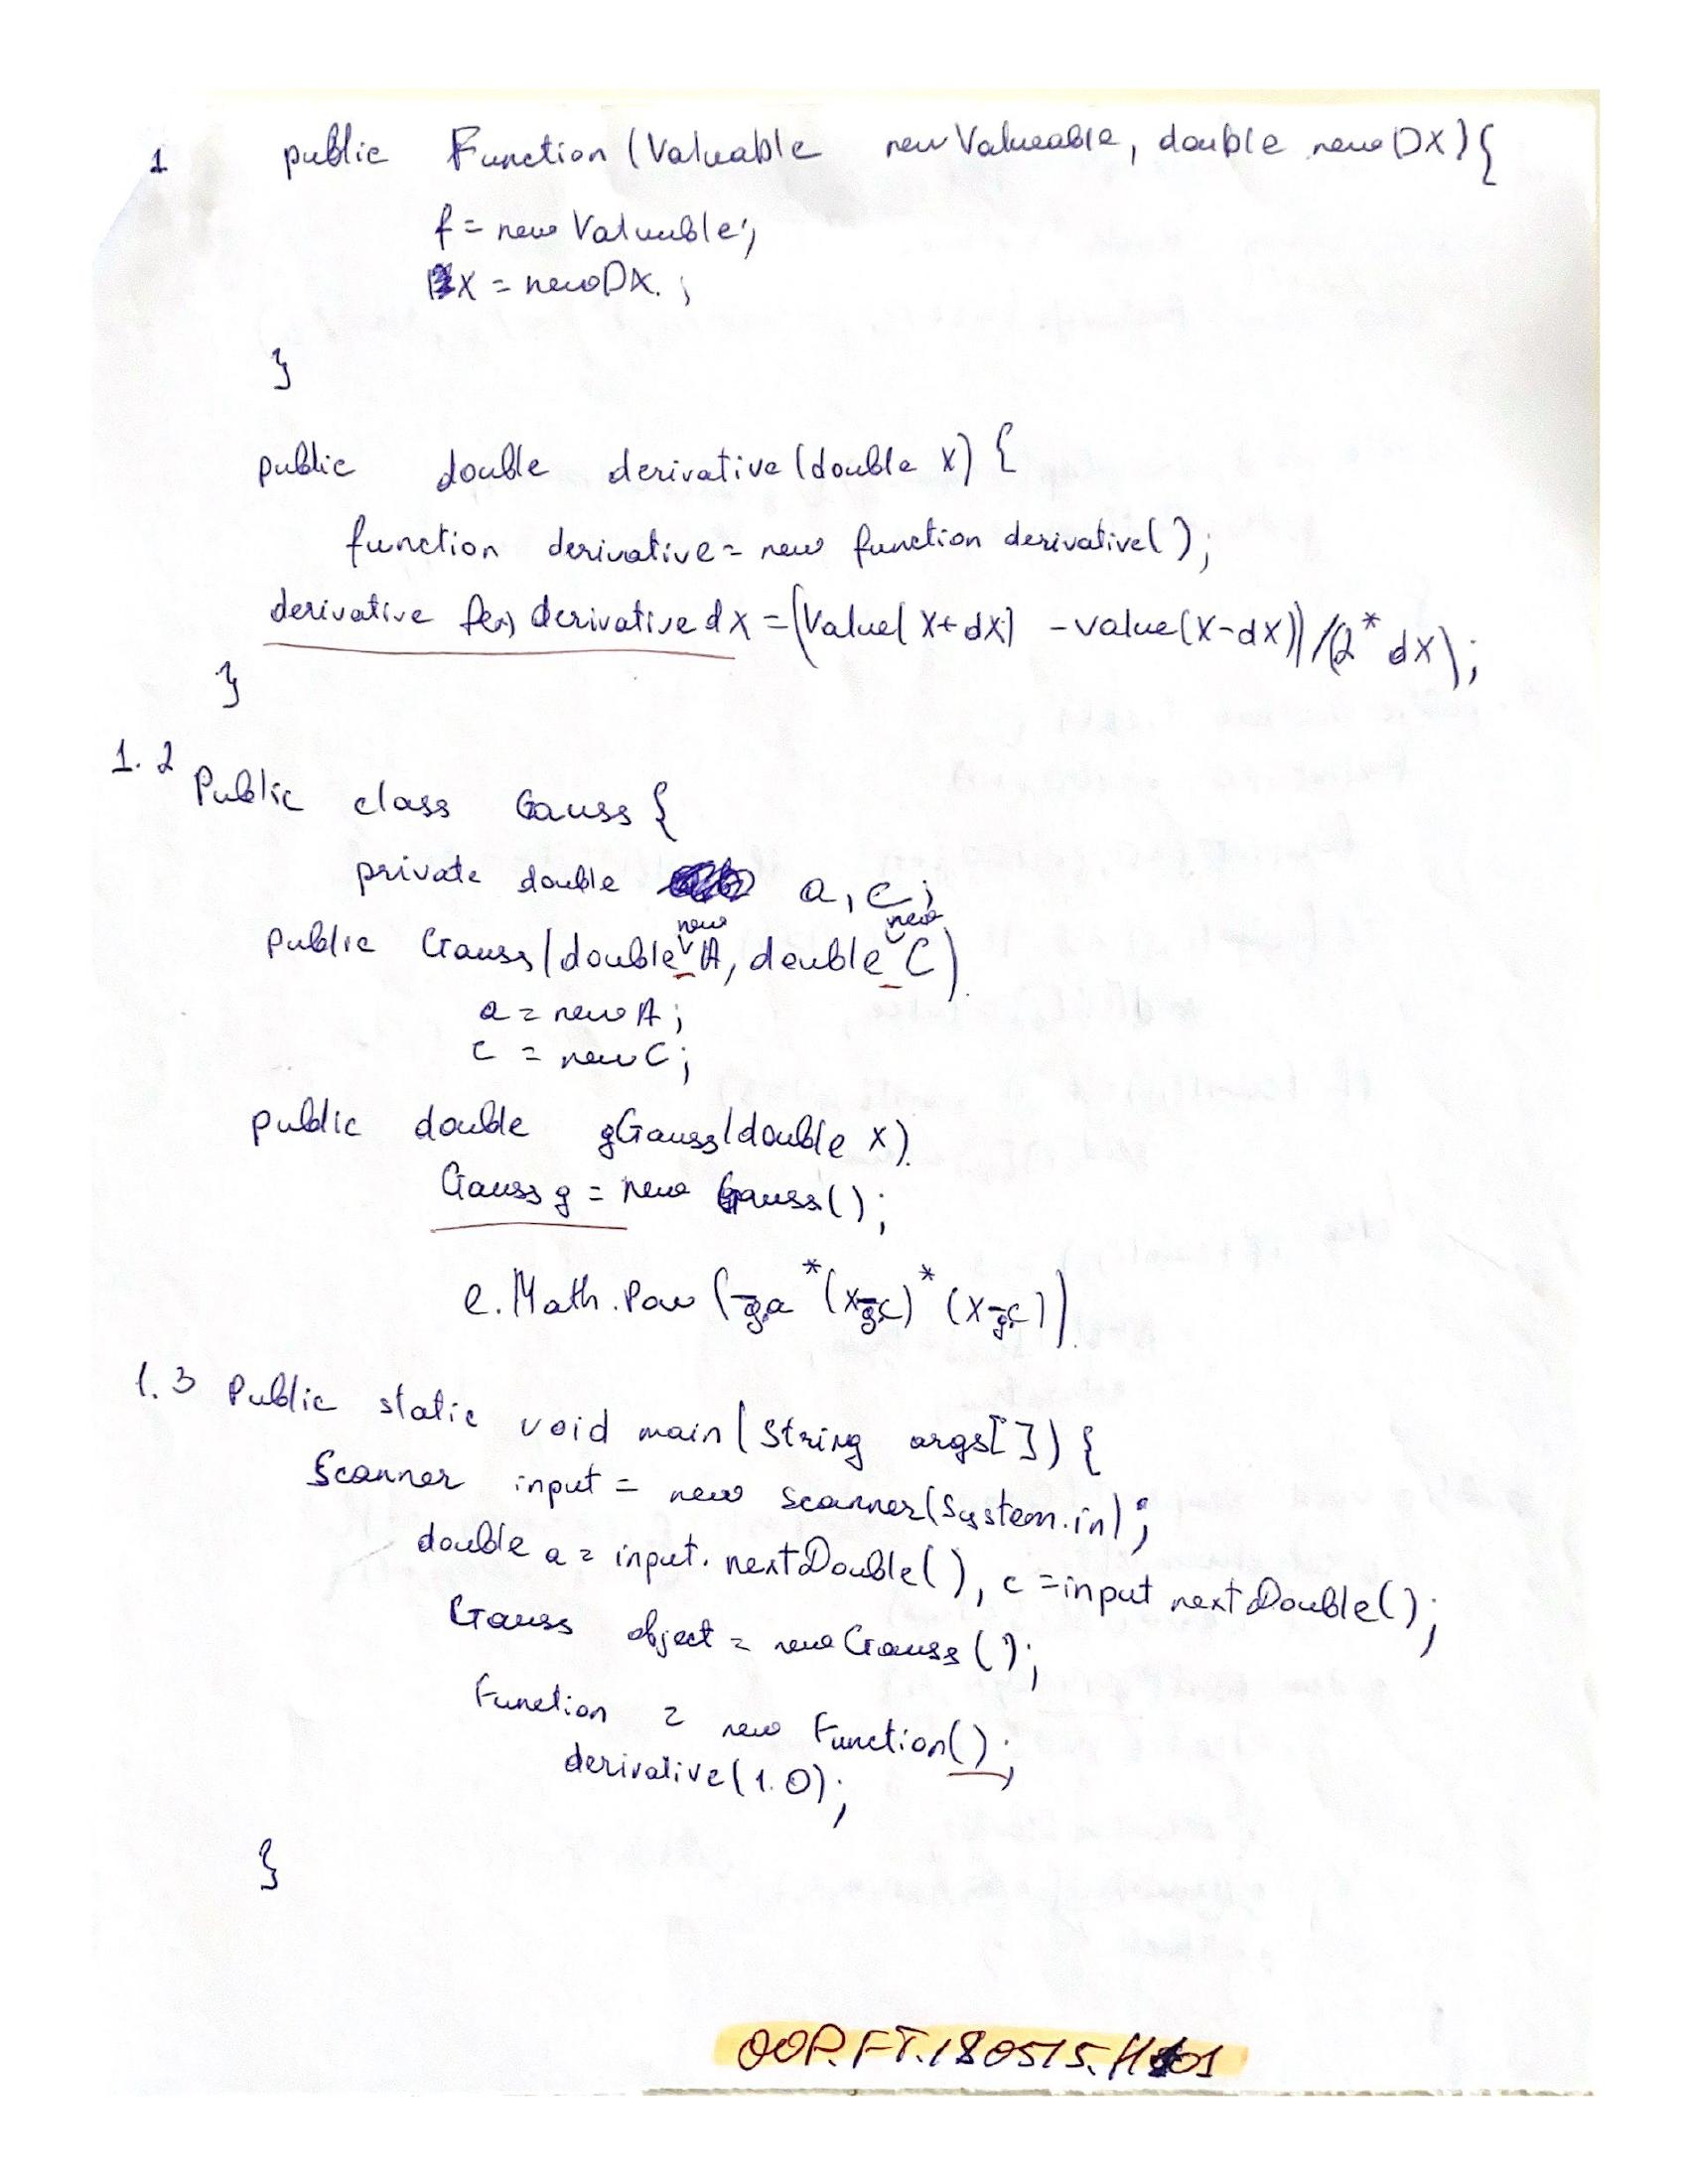 1 public Function (Valuable newValueable, double newDX) {
f = new Valuable;
x = newDX. ;
}
public double derivative (double x) {
function derivative = new function derivative( );
derivative f(x) derivative dx = (Value( x+dx) - value(x-dx)) / (2 * dx);
}
1.2 Public class Gauss {
private double a, c;
new new
Public Gauss (double A, double C)
a = new A;
c = new C;
public double gGauss (double x)
Gauss g = new Gauss( );
e.Math.Pow (-g.a * (x-g.c) * (x-g.c))
1.3 Public static void main (String args[ ]) {
Scanner input = new Scanner(System.in);
double a = input. nextDouble( ), c = input nextDouble( );
Gauss object = new Gauss ( );
Function = new Function( );
derivative (1.0);
}
OOP.FT.180515.H 01